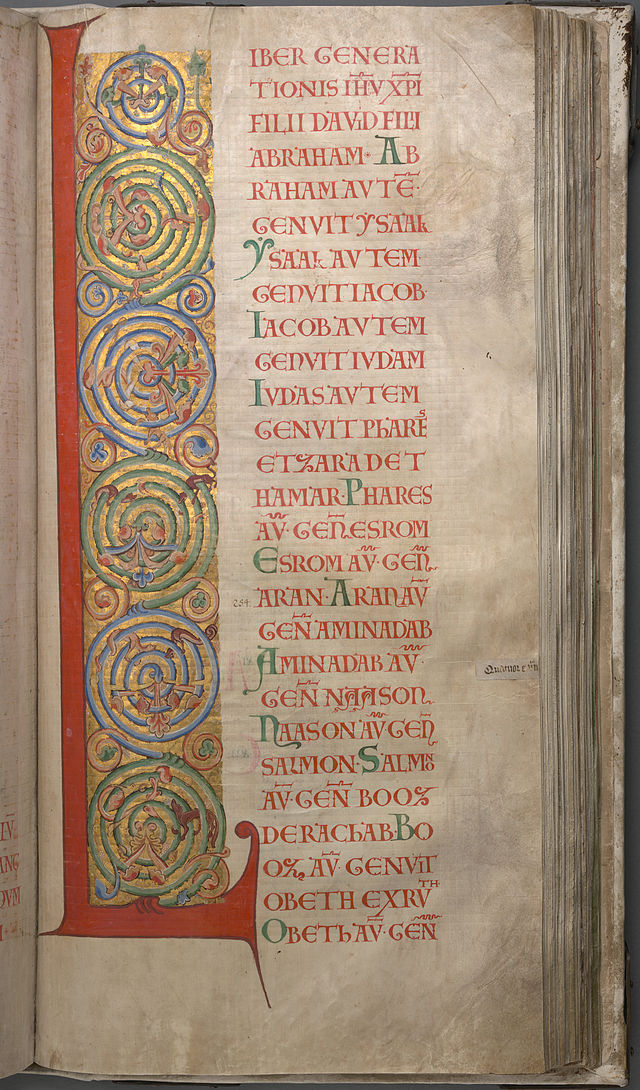 LIBER GENERA
TIONIS IHV XPI
FILII DAVID FILII
ABRAHAM · AB
RAHAM AVTE ·
GENVIT YSAAk
YSAAk AVTEM
GENVIT IACOB ·
IACOB AVTEM
GENVIT IVDAM
IVDAS AVTEM
GENVIT PhARES
ET ZARA DE T
HAMAR · PHARES
AV · GEN ESROM
ESROM AV · GEN
254 ARAN · ARAN AV
GEN AMINADAB
AMINADAB AV ·
GEN NAASON
NAASON AV GEN
SALMON · SALMON
AV · GEN BOOZ
DE RAChAB · BO
OZ · AV GENVIT
OBETH EX RVTH
OBETh AV · GEN